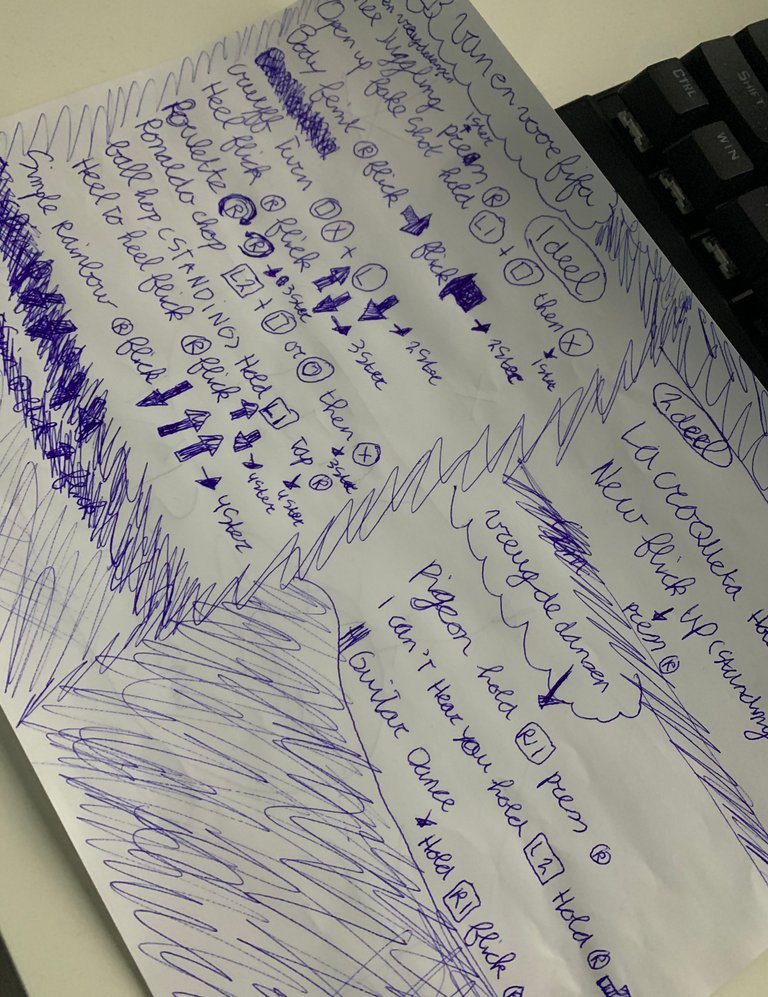 Van en voor fifa
1 deel
Knee Juggling press Ⓡ 1 ster
Open up fake shot hold L1 + □ then Ⓧ → 1 ster
Body feint Ⓡ flick → flick → 2 ster
Cruyff Turn □ Ⓧ + Ⓛ
Heel flick Ⓡ flick ↑ ↓ → 2 ster
Roulette Ⓡ Ⓡ → 3 ster
Ronaldo chop L2 + □ or Ⓞ then Ⓧ
Ball hop (STANDING) Hold L1 Tap Ⓡ → 4 ster
Heel to heel flick Ⓡ flick ↑ ↓ → 4 ster
Simple Rainbow Ⓡ flick ↓ ↑ ↑ → 4 ster
2 deel
La croqueta
New flick up (standing
press Ⓡ
vreugdedansen
Pigeon hold R1 press Ⓡ
I can't Hear you hold L2 Hold Ⓡ
Guitar Dance → Hold R1 flick Ⓡ
CTRL
SHIFT
WIN